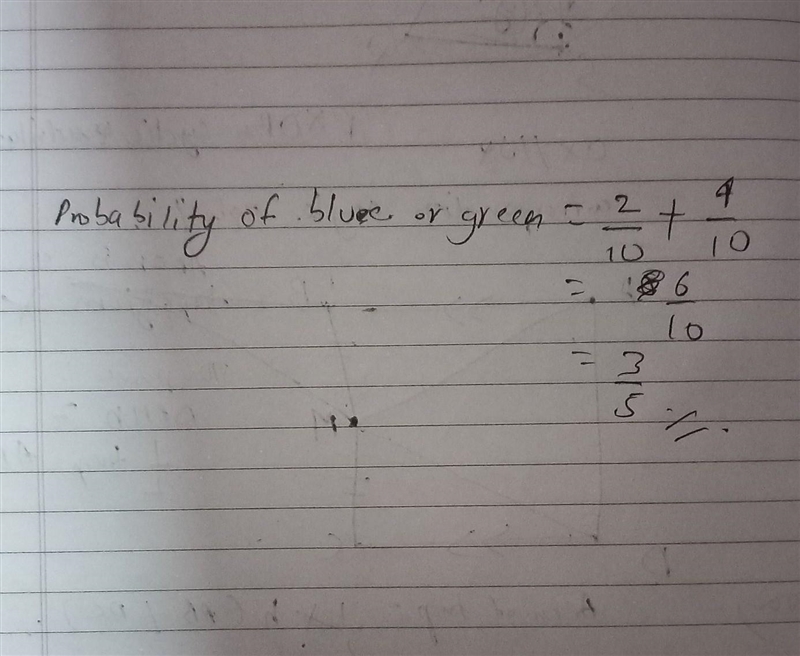 Probability of blue or green = 2/10 + 4/10
= 6/10
= 3/5